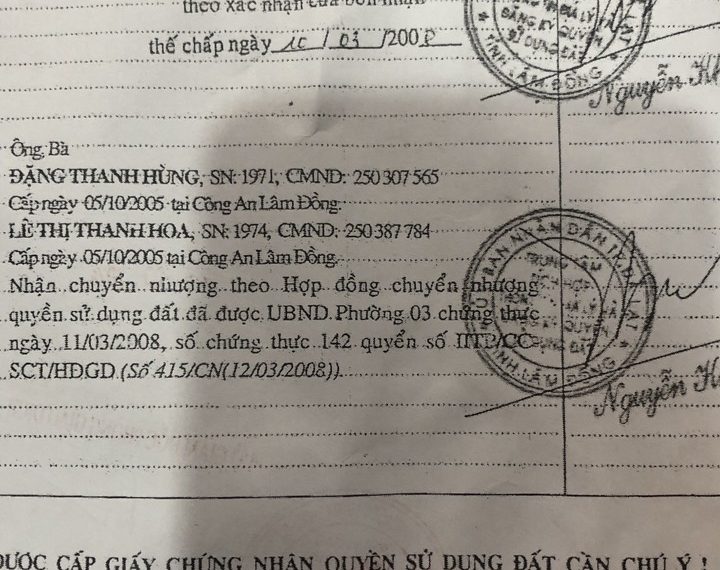 theo xác nhận của bên nhận
thế chấp ngày 10 / 03 /2008
ĐĂNG KÝ QUYỀN
SỬ DỤNG ĐẤT
TỈNH LÂM ĐỒNG
Nguyễn
Ông, Bà
ĐẶNG THANH HÙNG, SN: 1971, CMND: 250 307 565
Cấp ngày 05/10/2005 tại Công An Lâm Đồng.
LÊ THỊ THANH HOA, SN: 1974, CMND: 250 387 784
Cấp ngày 05/10/2005 tại Công An Lâm Đồng.
Nhận chuyển nhượng theo Hợp đồng chuyển nhượng
quyền sử dụng đất đã được UBND Phường 03 chứng thực
ngày 11/03/2008, số chứng thực 142 quyển số IITP/CC-
SCT/HĐGD (Số 415/CN(12/03/2008)).
ỦY BAN NHÂN DÂN TP. ĐÀ LẠT
TRUNG TÂM
TỈNH LÂM ĐỒNG
Nguyễn
ĐƯỢC CẤP GIẤY CHỨNG NHẬN QUYỀN SỬ DỤNG ĐẤT CẦN CHÚ Ý !